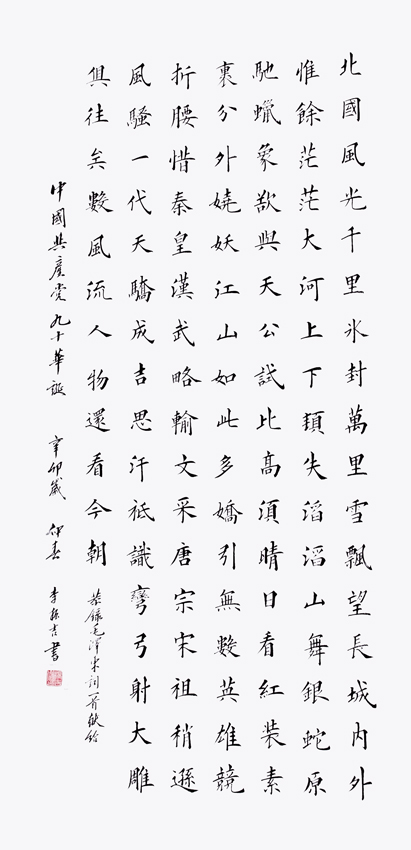 北國風光千里氷封萬里雪飄望長城內外
惟餘茫茫大河上下頓失滔滔山舞銀蛇原
馳蠟象欲與天公試比高須晴日看紅裝素
裹分外嬈妖江山如此多嬌引無數英雄競
折腰惜秦皇漢武略輸文采唐宗宋祖稍遜
風騷一代天驕成吉思汗祇識彎弓射大雕
俱往矣數風流人物還看今朝 恭錄毛澤東詞一首獻給
中國共產黨九十華誕 辛卯歲 仲春 書